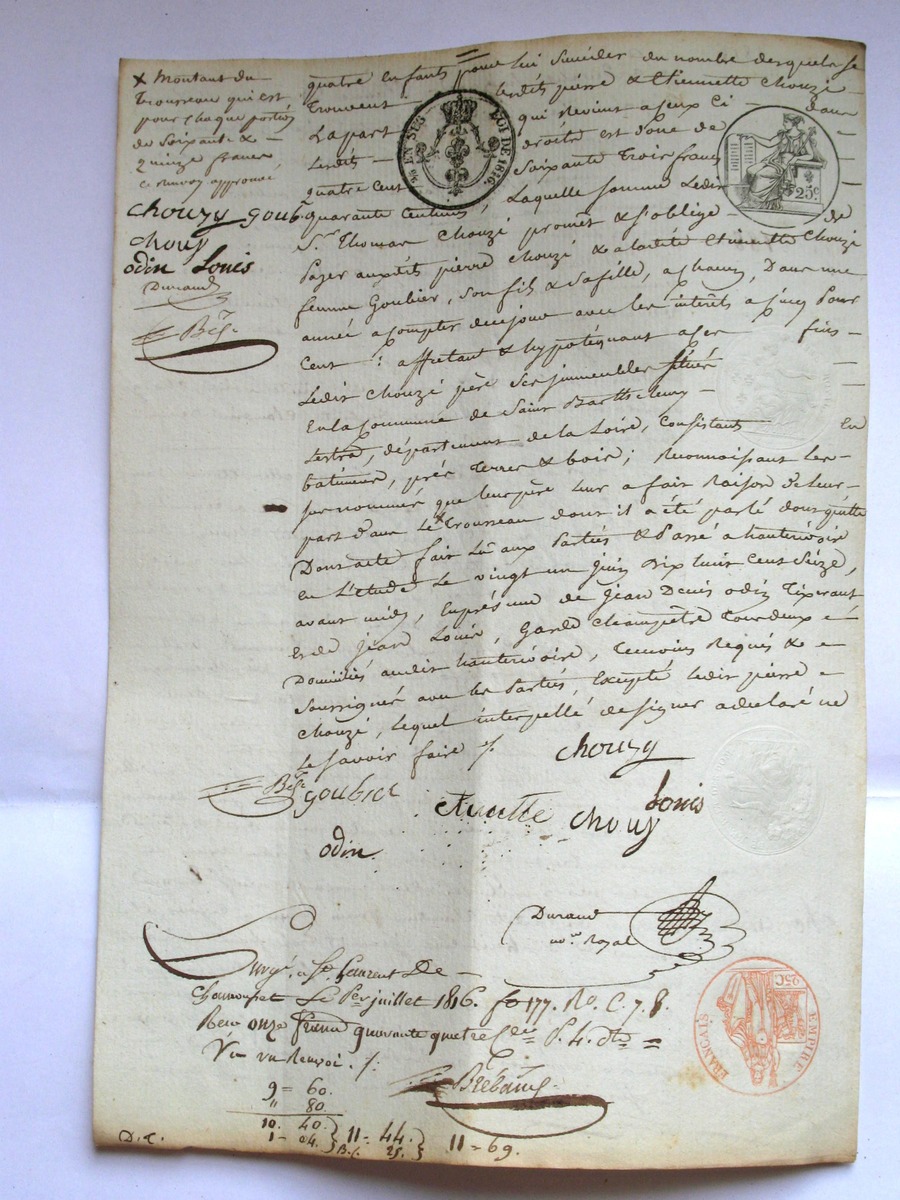 x Montant du
Trousseau qui est
pour chaque portion
de Soixante &
quinze francs
ce renvoi approuvé
chouzy goub.
chouy
odin Louis
Durand
quatre enfants pour lui Succéder du nombre desquels se
trouvent lesdits pierre & Etiennette Chouzé
La part qui Revient a Ceux Ci dans
Lesdits droits est donc de
quatre Cent Soixante Trois francs
quarante Centimes, Laquelle Somme Ledit
Sr. Thomas Chouzé promet & S'oblige de
Payer auxdits pierre Chouzé & a ladite Etiennette Chouzé
femme Goubier, Son fils & Sa fille, a chacun, Dans une
année a Compter de ce jour avec les intérêts a Cinq pour
Cent : affectant & hypotéquant a Ces fins
Ledit Chouzé père Ses immeubles Situés
En la Commune de Saint Barthelemy
Lestra, département de la Loire, Consistants En
batiments, prés Terres & bois; Reconnaissant les
Sus nommés que leur père leur a fait Raison de Leur
part dans Le x trousseau dont il a été parlé dont quitte
Dont acte fait Lu aux Parties & Passé a hauterivoire
en L'étude Le vingt un juin dix huit Cent Seize,
avant midi, En présence de Jean Denis odin Tixerant
Et de Jean Louis, Garde Champêtre Tous deux
Domiciliés audit hauterivoire, Temoins Requis &
Soussignés avec les Parties, Excepté Ledit pierre
Chouzé, Lequel interpellé de Signer a declaré ne
Le Savoir faire ./.
chouzy
goubier
Louis
chouy
odin
Durand
no.re Royal
Enreg. a St. Laurent De
Chamousset Le 1er juillet 1816. fo 177. Ro. C. 7. 8.
Reçu onze francs quarante quatre
Vu un Renvoi. /.
9 = 60.
" 80.
10. 40.
1 - 04.
11 = 44.
25.
11 = 69.
ROI DE 1816.
25c
EMPIRE
FRANÇAIS
25C